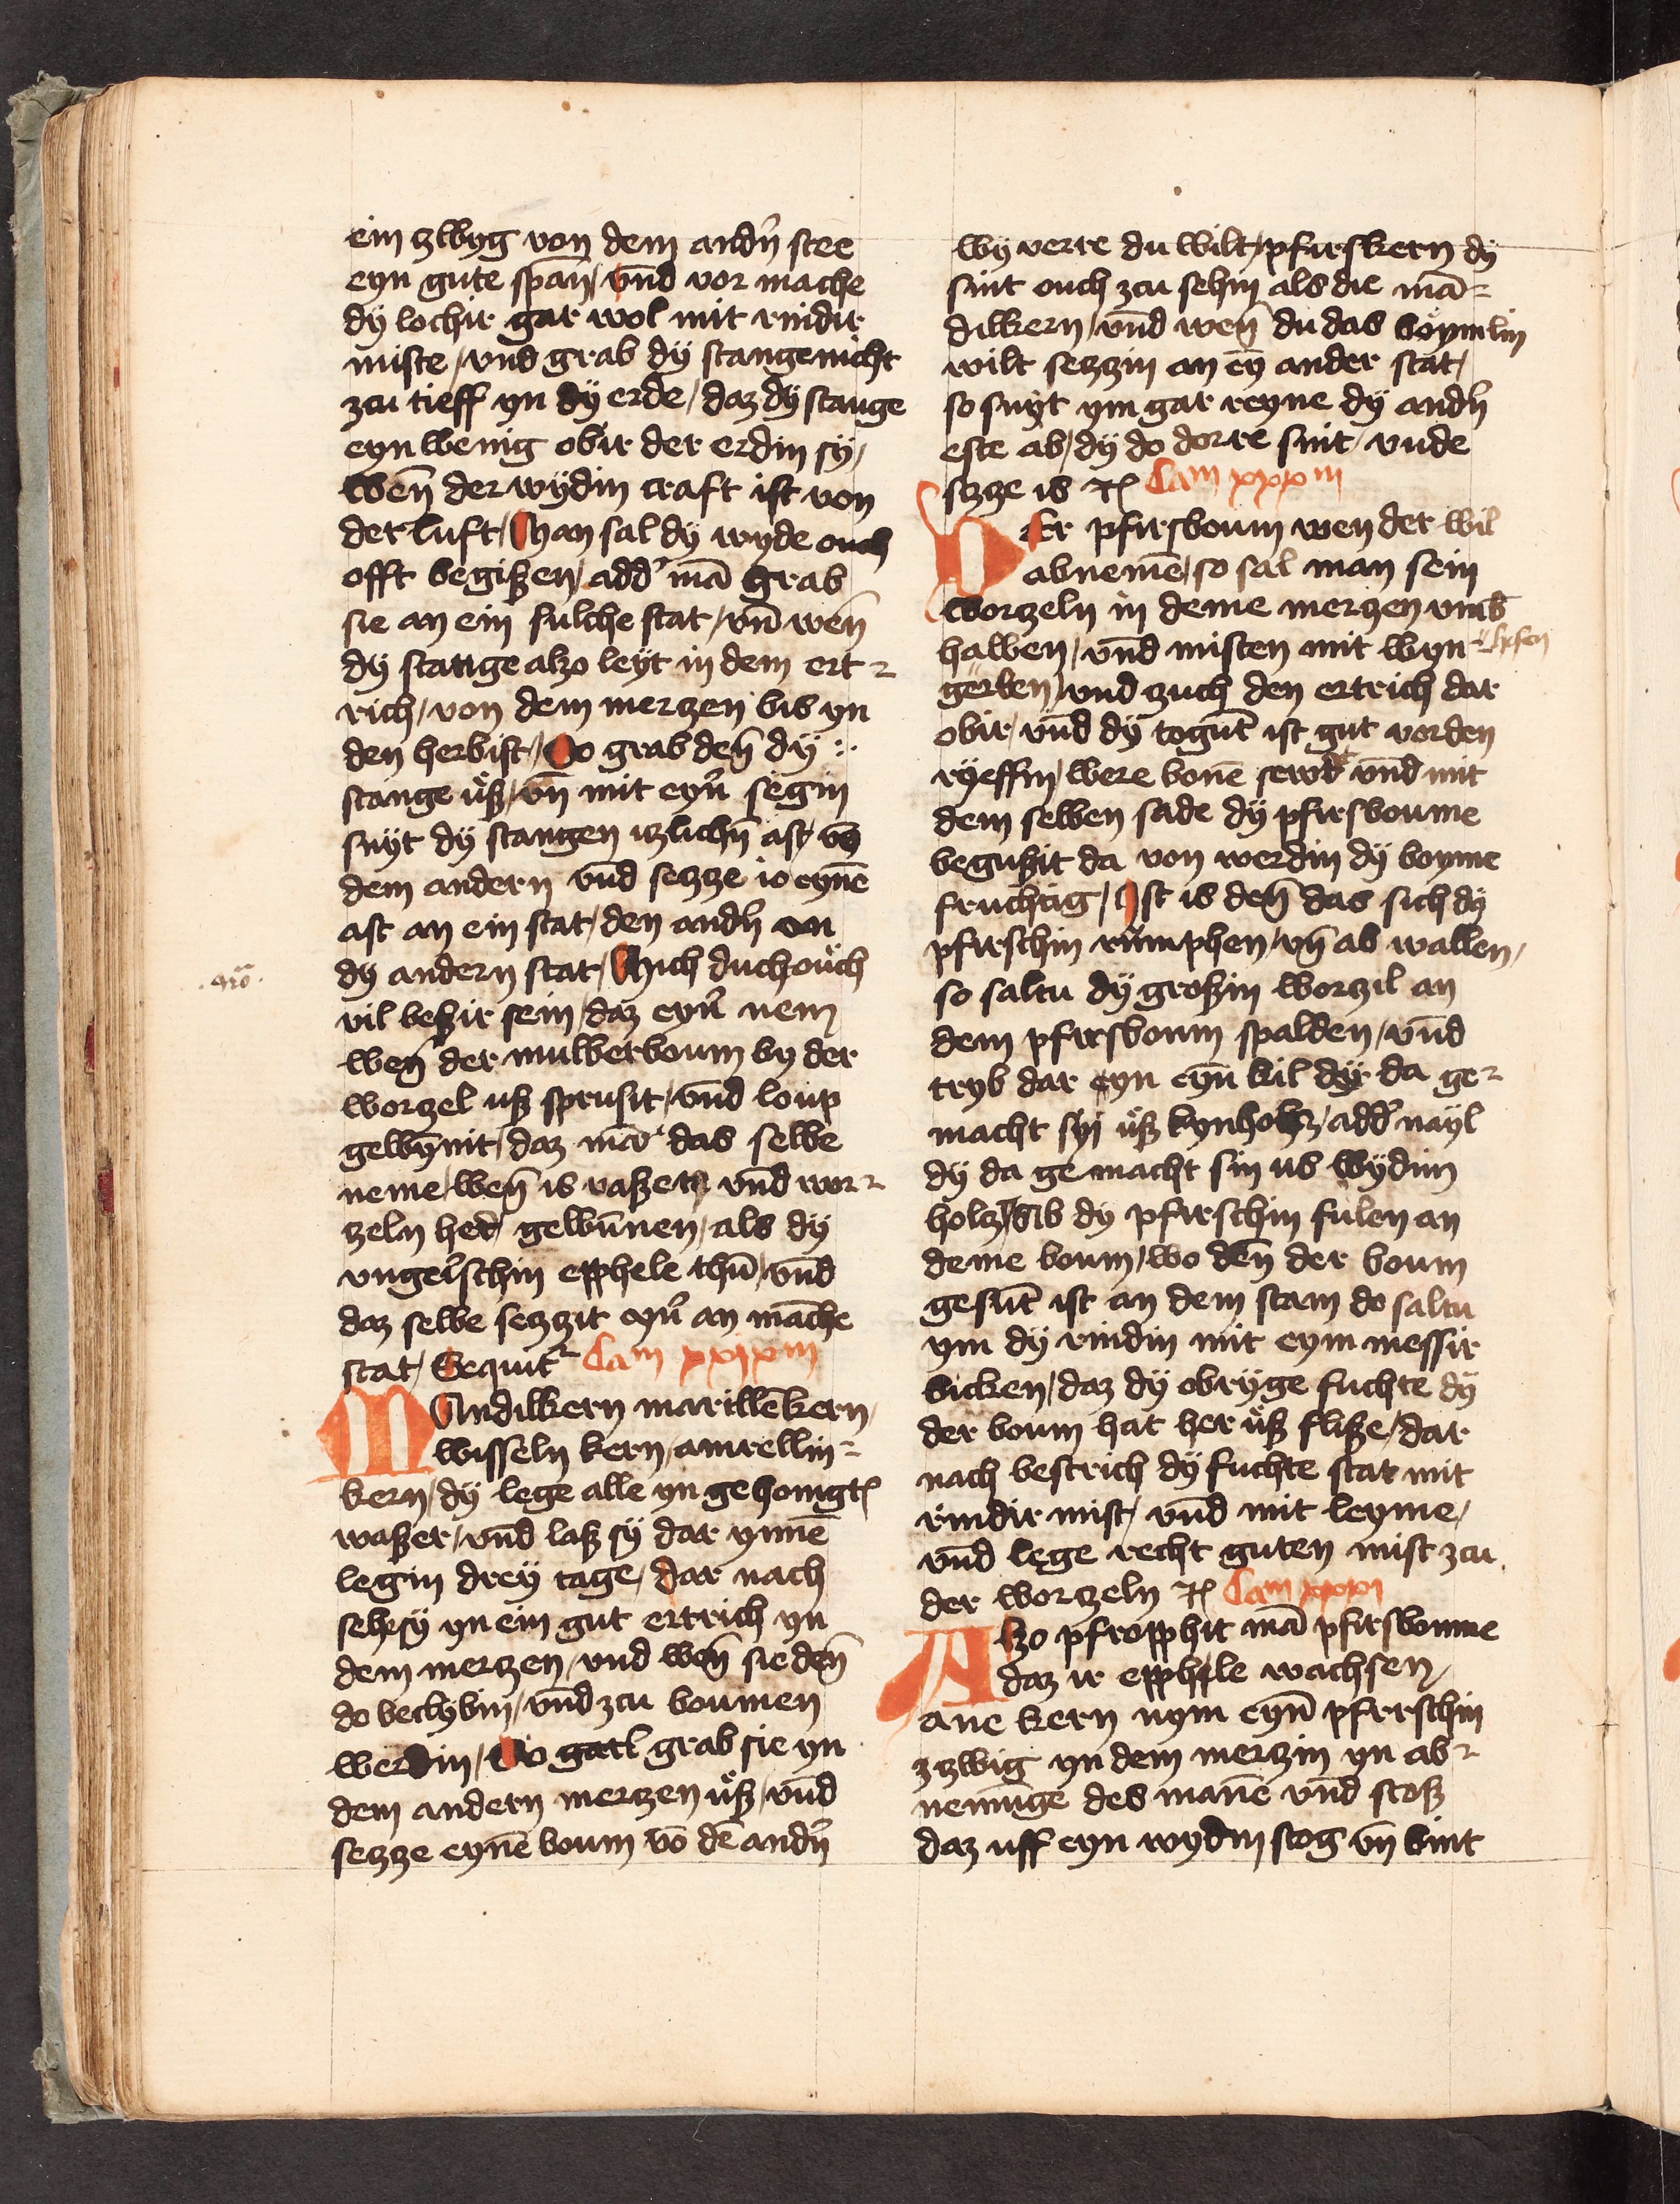 ein zwyg von dem andn̄ stee
eyn gute span̄ / vnd vor mache
dÿ lochir gar wol mit rindir
miste / vnd grab dÿ stange nicht
zcu tieff yn dÿ erde / daz dÿ stange
eyn wenig obir der erdin sÿ /
Wen̄ der wÿdin craft ist von
der luft / Man sal dÿ wyde ouch
offt begißen / add' mā grab
sie an ein sulche stat / vn̄ wen̄
dÿ stange alzo leÿt in dem ert-
rich / von dem merczen bis yn
den herbist / So grab den̄ dÿ
stange uß / vn̄ mit eyn̄ segin
snÿt dÿ stangen iczlichn̄ ast / vō
dem andern vnd seczze io eynē
ast an ein stat / den andn̄ an
dÿ andern stat / Mich duch ouch
vil beßir sein / daz eyn̄ nem
wen̄ der mulberboum by der
worczel uß sprusit / vnd loup
gewynnit / daz mā das selbe
neme / wen̄ is vaßet vnd wor-
czeln her gewūnen / als dÿ
vngerschin epphele thū / vnd
daz selbe seczzit eyn̄ an māche
stat / Sequit² Cam xxixm
Mandilkern marillēkern /
wisseln kern / amrellin-
kern / dÿ lege alle yn gehonigt
waßer / vnd laß sÿ dar ynnē
legin dreÿ tage / dar nach
sehe sÿ yn ein gut ertrich yn
dem merczen / vnd wen̄ sie den̄
do beclybin / vnd zcu boumen
werdin / So gatl grab sie yn
dem andern merczen uß / vnd
seczze eynē boum vō dē andn̄
wÿ verre du wilt / pfirskern dÿ
sint ouch zcu sehin als die mā-
dilkern / vnd wen̄ du das böymlin
wilt seczzin an eȳ ander stat /
so snÿt ym gar reyne dÿ andn̄
este ab / dÿ do dorre sint / vnde
seczze is etc Cam xxxm
Der pfirsboum wen der wil
abnemē / so sal man sein
worczeln in deme merczen vmb
hawen / vnd misten mit wyn- hefen
gerben / vnd zuch den ertrich dar
obir / vnd dÿ togūt ist gut vor den
rÿeffin / were bonē sewd vnd mit
dem selben sade dÿ pfirsboume
begußit da von werdin dÿ boyme
fruchtig / Ist is den̄ das sich dÿ
pfirschin rumphen / vn̄ ab wallen /
so saltu dÿ großin worczil an
dem pfirsboum spalden / vnd
tryb dar eyn eyn̄ kil dÿ da ge-
macht sÿ uß kynholcz / add' nayl
dÿ da gemacht sin us wÿdim
holcz / Ab dÿ pfirschin fulen an
deme boum / wo den̄ der boum
gesūt ist an dem stam do saltu
ym dÿ rindin mit eym messir
bicken / daz dÿ obryge fuchte dÿ
der boum hat her uß fliße / dar
nach bestrich dÿ fuchte stat mit
rindir mist / vnd mit leyme /
vnd lege recht guten mist zcu
der worczeln etc Cam xxxi
Alzo pfropphit mā pfirsboume
daz ir epphele wachsen /
ane kern nym eyn̄ pfirschin
zczwig yn dem merczin yn ab-
nemūge des manē vnd stoß
daz uff eyn wydin stog vn̄ bint